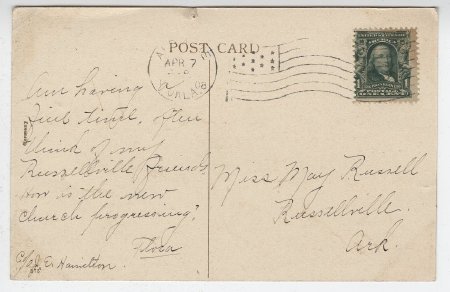 POST CARD
APR 7
OKLA
08
Am having
fine time. Often
think of my
Russellville friends
How is the new
church progressing?
Flora
C/o J. E. Hamilton.
Miss May Russell
Russellville.
Ark.